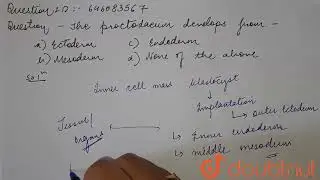 Question ID :: 644083567
Question - The proctodaeum develops from -
a) Ectoderm c) Endoderm
b) Mesoderm d) None of the above
Sol^n
Inner cell mass Blastocyst
↓
Implantation
↳ outer Ectoderm
Tissues/ ↳ Inner endoderm
organs ↳ middle mesoderm
doubtnut